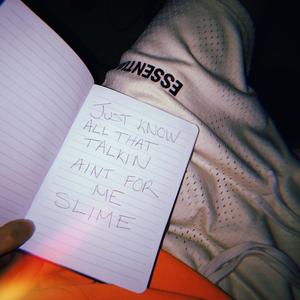 ESSENTI
JUST KNOW
ALL THAT
TALKIN
AINT FOR
ME
SLIME